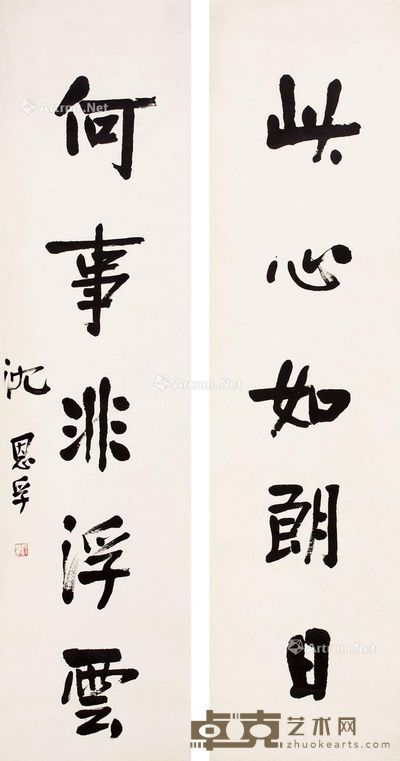 此心如朗日
何事非浮雲
沈恩孚
Artron.Net
Artron.Net
Artron.Net
Artron.Net
卓克艺术网
zhuokearts.com